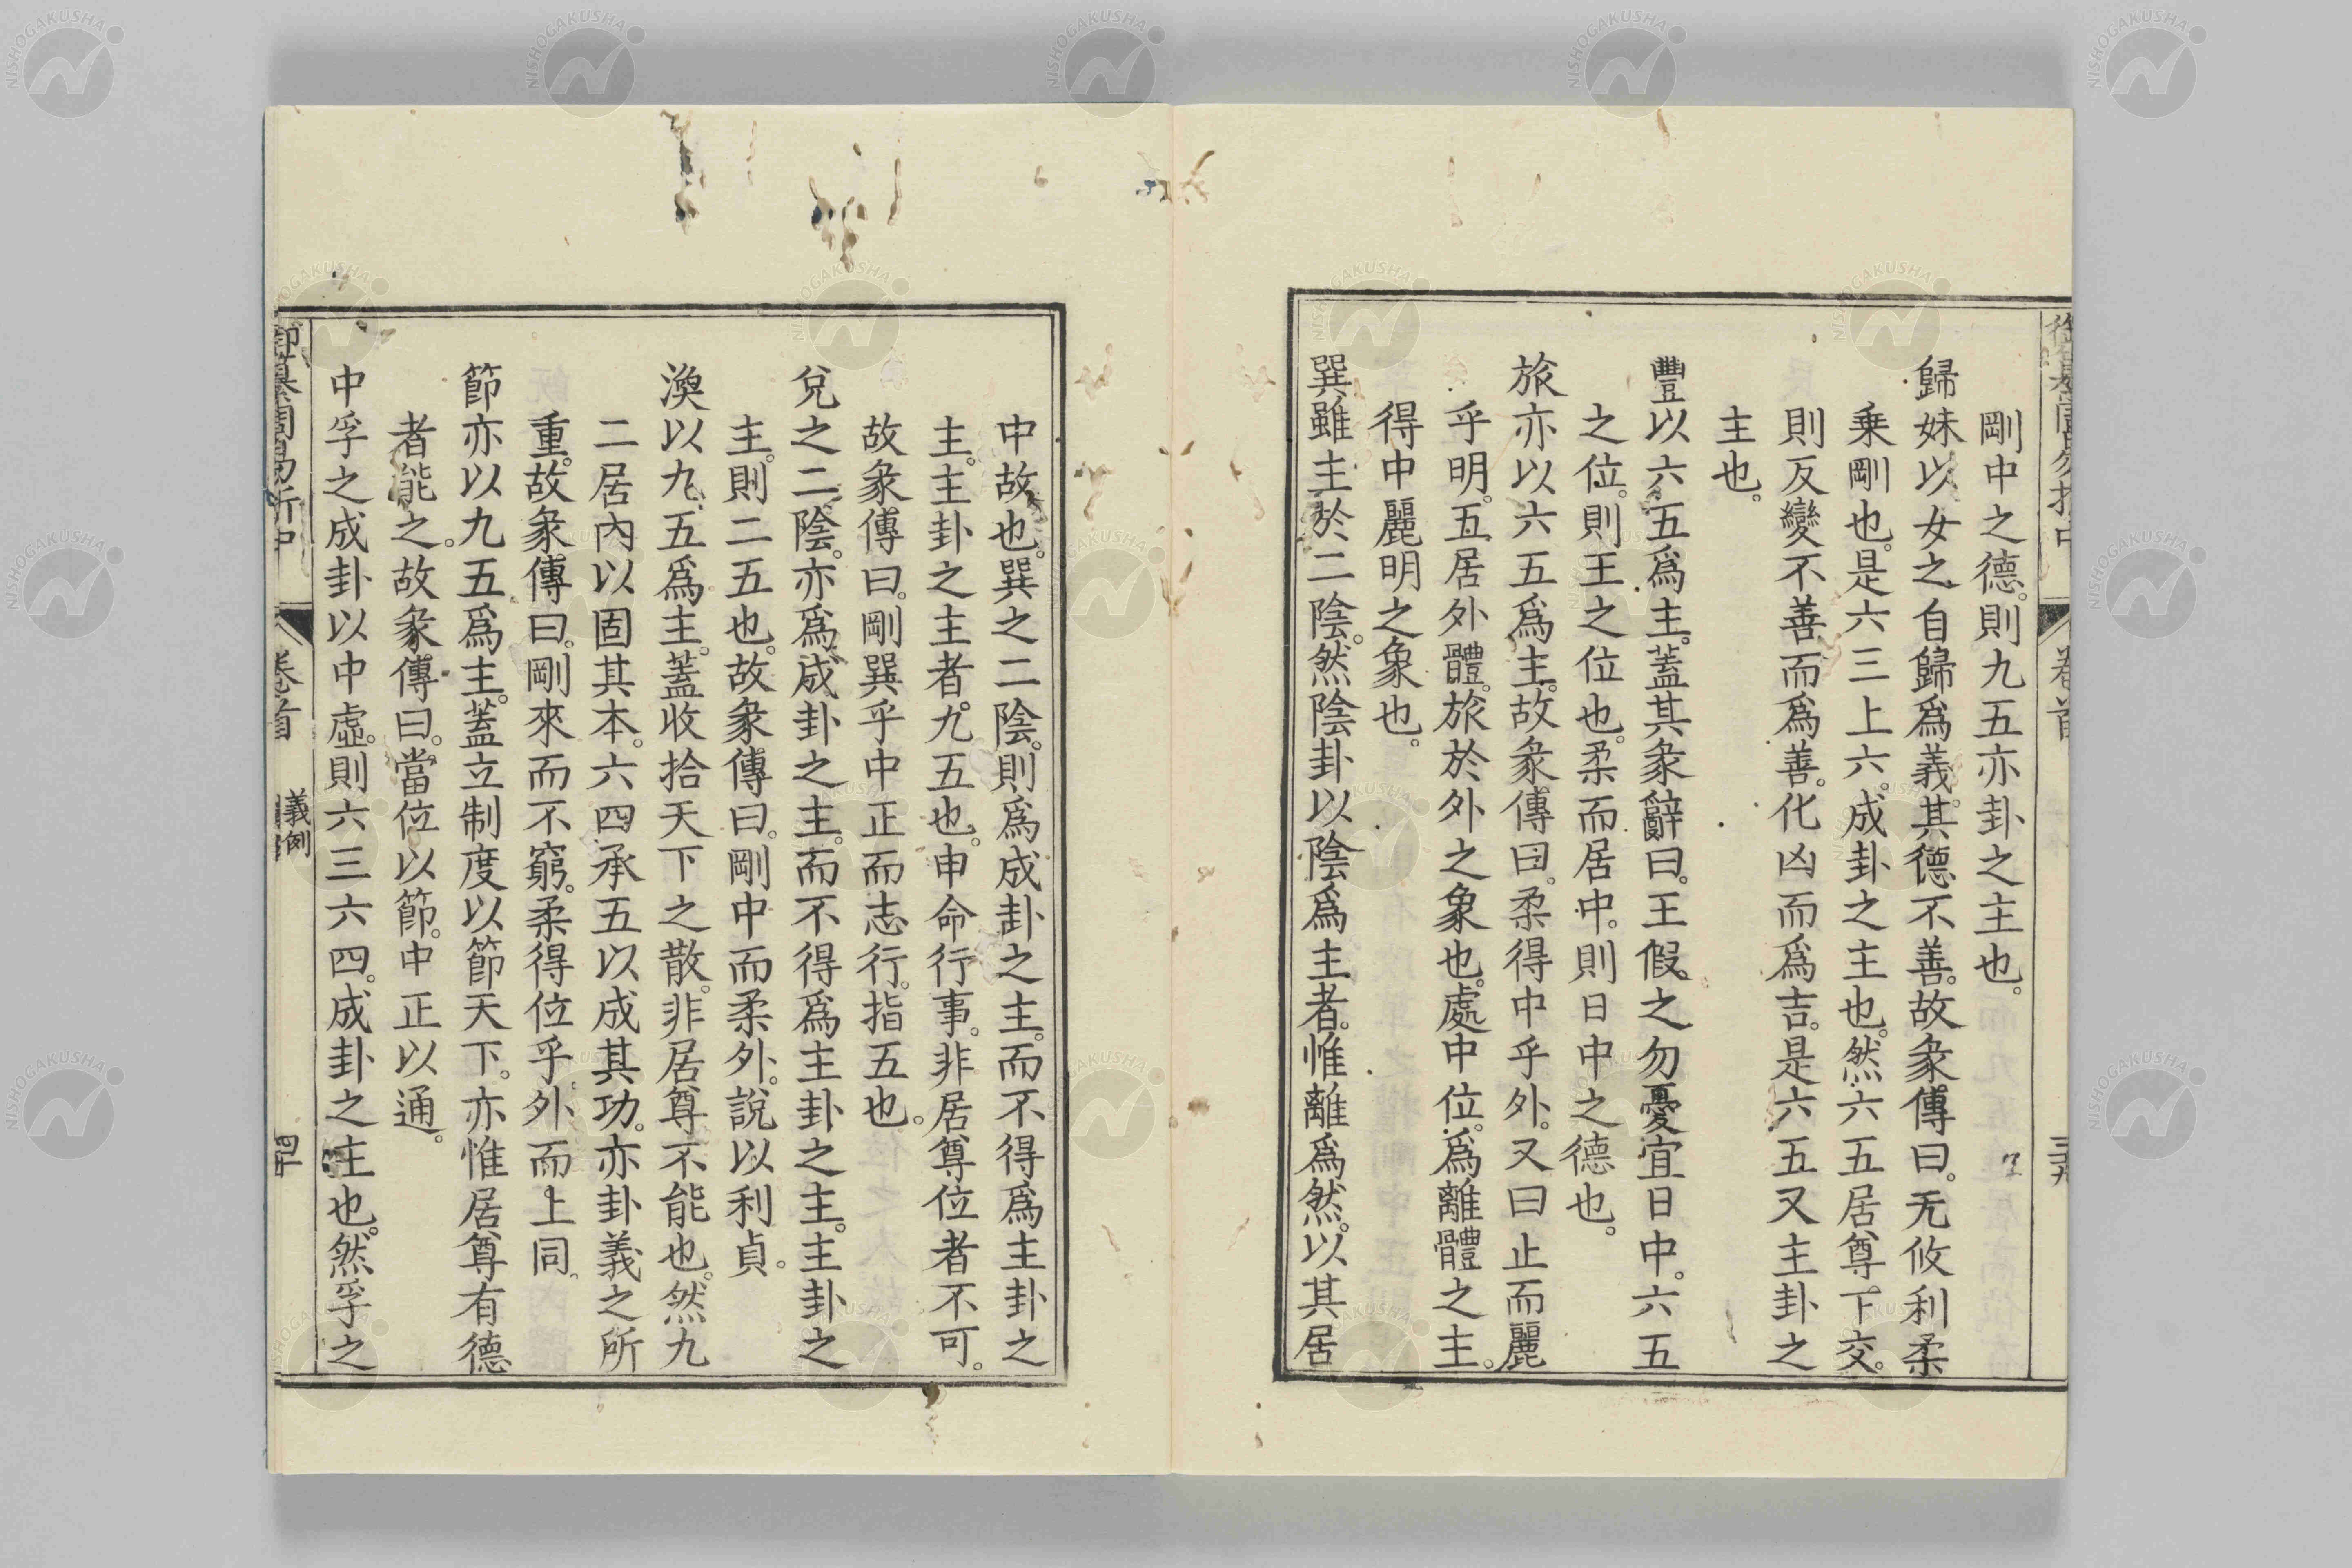 剛中之德。則九五亦卦之主也。
歸妹以女之自歸爲義。其德不善。故彖傳曰。无攸利柔
乗剛也。是六三上六。成卦之主也。然六五居尊。下交。
則反變不善而爲善。化凶而爲吉。是六五又主卦之
主也。
豐以六五爲主。蓋其彖辭曰。王假之勿憂宜日中。六五
之位。則王之位也。柔而居中。則日中之德也。
旅亦以六五爲主。故彖傳曰。柔得中乎外。又曰止而麗
乎明。五居外體。旅於外之象也。處中位。爲離體之主。
得中麗明之象也。
巽雖主於二陰。然陰卦以陰爲主者。惟離爲然。以其居
中故也。巽之二陰。則爲成卦之主。而不得爲主卦之
主。主卦之主者。九五也。申命行事。非居尊位者不可。
故彖傳曰。剛巽乎中正而志行。指五也。
兌之二陰。亦爲成卦之主。而不得爲主卦之主。主卦之
主。則二五也。故彖傳曰。剛中而柔外。說以利貞。
渙以九五爲主。蓋收拾天下之散。非居尊不能也。然九
二居內以固其本。六四承五以成其功。亦卦義之所
重。故彖傳曰。剛來而不窮。柔得位乎外而上同。
節亦以九五爲主。蓋立制度以節天下。亦惟居尊有德
者能之。故彖傳曰。當位以節。中正以通。
中孚之成卦以中虛。則六三六四。成卦之主也。然孚之
御纂周易折中 卷首 義例 四十